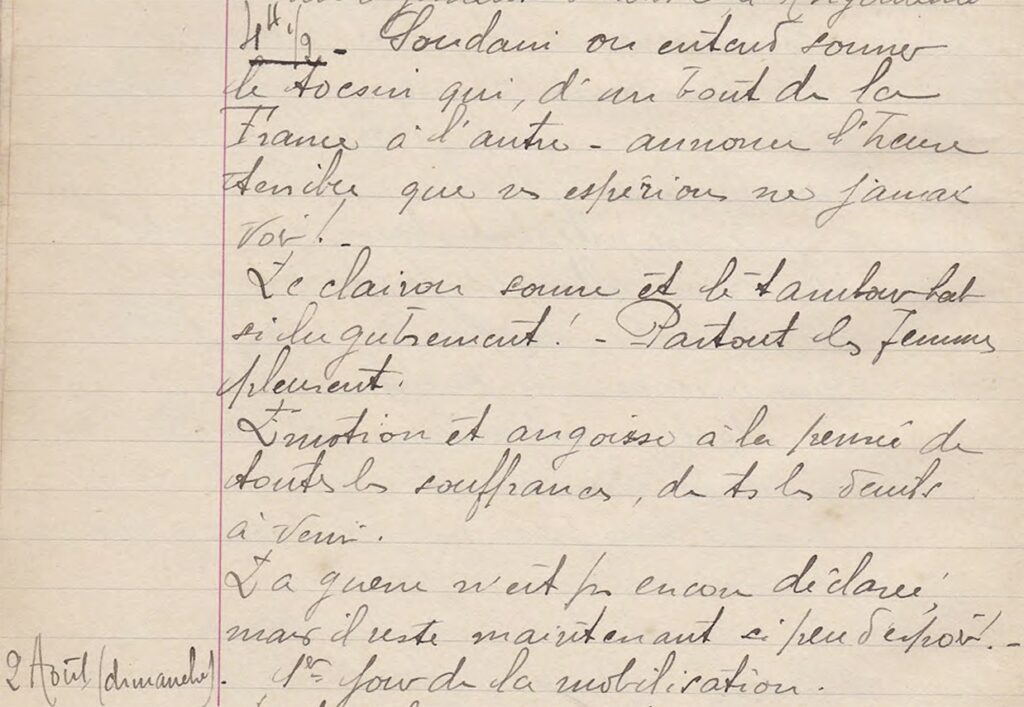 4H 1/2 - Soudain on entend sonner
le tocsin qui, d'un bout de la
France à l'autre - annonce l'heure
terrible que ns espérions ne jamais
voir ! -
Le clairon sonne et le tambour bat
si lugubrement ! - Partout les femmes
pleurent.
Emotion et angoisse à la pensée de
toutes les souffrances, de ts les deuils
à venir.
La guerre n'est ps encore déclarée,
mais il reste maintenant si peu d'espoir ! -
2 Août (dimanche). 1er jour de la mobilisation.